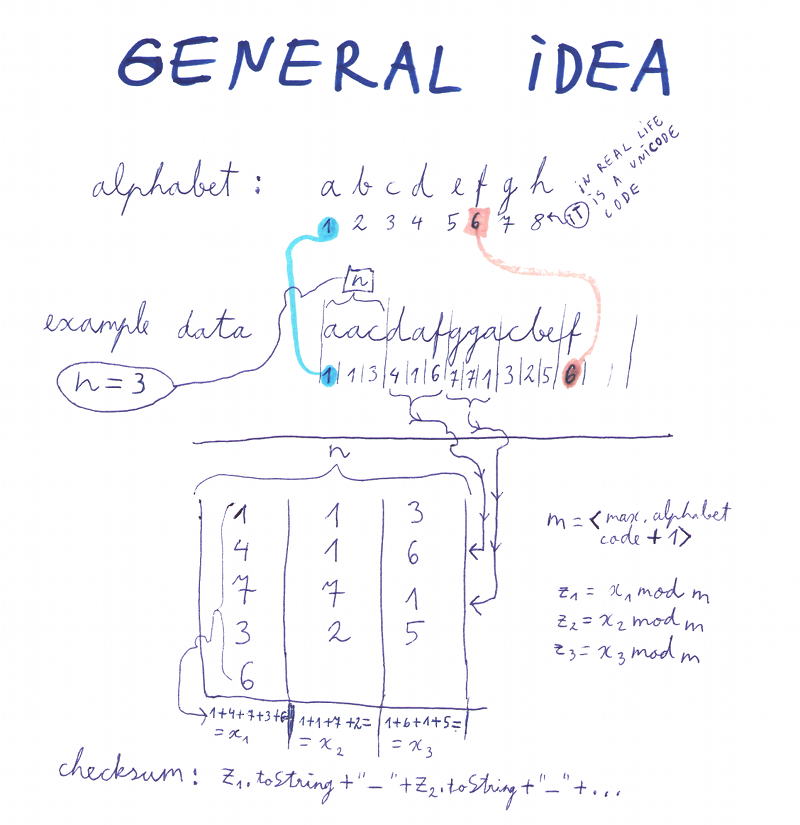 GENERAL iDEA
alphabet : a b c d e f g h
1 2 3 4 5 6 7 8 ← iT
IN REAL LIFE
IS A UNICODE
CODE
n
example data aacdafggacbef
n = 3
1|1|3|4|1|6|7|7|1|3|2|5|6
n
1 1 3
4 1 6
7 7 1
3 2 5
6
m = <max. alphabet
code + 1>
z₁ = x₁ mod m
z₂ = x₂ mod m
z₃ = x₃ mod m
1+4+7+3+6 1+1+7+2= 1+6+1+5=
= x₁ = x₂ = x₃
checksum : z₁.toString + "_" + z₂.toString + "_" + ...